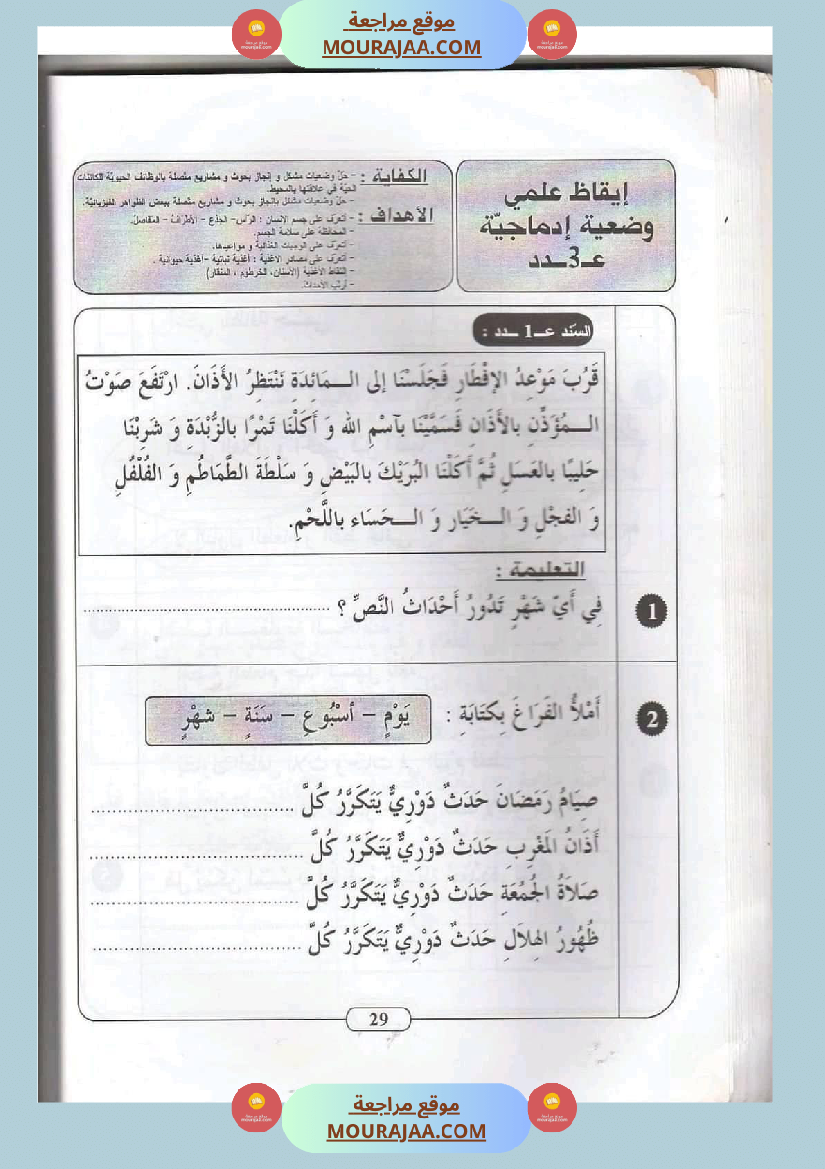 موقع مراجعة
MOURAJAA.COM
إيقاظ علمي
وضعية إدماجيّة
عـ3ـدد
الكفاية : - حلّ وضعيات مشكل و إنجاز بحوث و مشاريع متّصلة بالوظائف الحيويّة للكائنات
الحيّة في علاقتها بالمحيط.
- حلّ وضعيات مشكل بانجاز بحوث و مشاريع متّصلة ببعض الظواهر الفيزيائيّة.
الأهداف : - تعرّف على جسم الانسان : الرّأس- الجذع - الأطراف - المفاصل.
- المحافظة على سلامة الجسم.
- تعرّف على الوجبات الغذائية و مواعيدها.
- تعرّف على مصادر الأغذية : أغذية نباتية - أغذية حيوانية .
- التقاط الأغذية (الأسنان، الخرطوم ، المنقار)
- أرتّب الأحداث.
السّند عـ1 ـدد :
قَرُبَ مَوْعِدُ الإِفْطَارِ فَجَلَسْنَا إلى الـمَائِدَةِ نَنْتَظِرُ الأَذَانَ. ارْتَفَعَ صَوْتُ
الـمُؤَذِّنِ بالأَذَانِ فَسَمَّيْنَا بآسْمِ الله وَ أَكَلْنَا تَمْرًا بالزُّبْدَةِ وَ شَرِبْنَا
حَلِيبًا بالعَسَلِ ثُمَّ أَكَلْنَا البُرَيْكَ بالبَيْضِ وَ سَلْطَةَ الطَّمَاطُمِ وَ الفُلْفُلِ
وَ الفجْلِ وَ الـخَيَار وَ الـحَسَاء باللَّحْمِ.
التعليمة :
1 فِي أَيّ شَهْرٍ تَدُورُ أَحْدَاثُ النَّصِّ ؟ ..............................
2 أَمْلأُ الفَرَاغَ بِكتَابَةِ : يَوْمٍ – أسْبُوعٍ – سَنَةٍ – شهْرٍ
صِيَامُ رَمَضَانَ حَدَثٌ دَوْرِيٌّ يَتَكَرَّرُ كُلَّ ..............................
أَذَانُ المَغْرِبِ حَدَثٌ دَوْرِيٌّ يَتَكَرَّرُ كُلَّ ..............................
صَلاَةُ الجُمُعَةِ حَدَثٌ دَوْرِيٌّ يَتَكَرَّرُ كُلَّ ..............................
ظُهُورُ الهِلاَلِ حَدَثٌ دَوْرِيٌّ يَتَكَرَّرُ كُلَّ ..............................
29
موقع مراجعة
MOURAJAA.COM